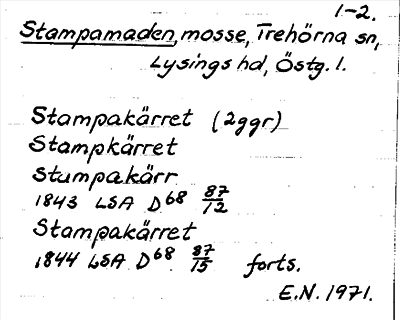 1-2.
Stampamaden, mosse, Trehörna sn,
Lysings hd, Östg. l.
Stampakärret (2ggr)
Stampkärret
Stumpakärr
1843 LSA D68 87/12
Stampakärret
1844 LSA D68 87/15 forts.
E.N. 1971.